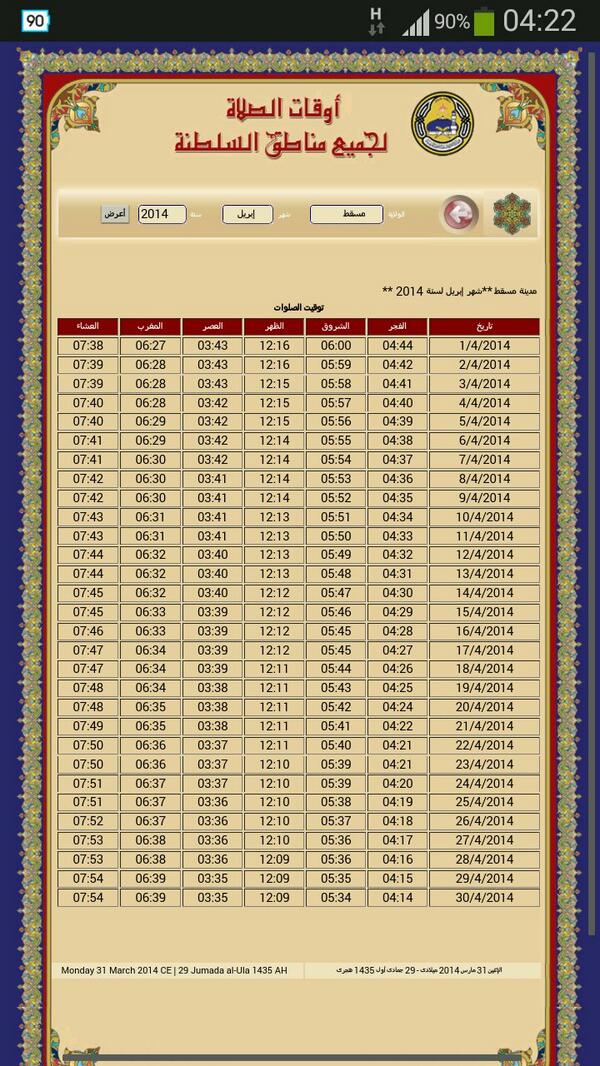 90
H
90%
04:22
أوقات الصلاة
لجميع مناطق السلطنة
الولاية مسقط شهر إبريل سنة 2014 أعرض
مدينة مسقط**شهر إبريل لسنة 2014 **
توقيت الصلوات
تاريخ الفجر الشروق الظهر العصر المغرب العشاء
1/4/2014 04:44 06:00 12:16 03:43 06:27 07:38
2/4/2014 04:42 05:59 12:16 03:43 06:28 07:39
3/4/2014 04:41 05:58 12:15 03:43 06:28 07:39
4/4/2014 04:40 05:57 12:15 03:42 06:28 07:40
5/4/2014 04:39 05:56 12:15 03:42 06:29 07:40
6/4/2014 04:38 05:55 12:14 03:42 06:29 07:41
7/4/2014 04:37 05:54 12:14 03:42 06:30 07:41
8/4/2014 04:36 05:53 12:14 03:41 06:30 07:42
9/4/2014 04:35 05:52 12:14 03:41 06:30 07:42
10/4/2014 04:34 05:51 12:13 03:41 06:31 07:43
11/4/2014 04:33 05:50 12:13 03:41 06:31 07:43
12/4/2014 04:32 05:49 12:13 03:40 06:32 07:44
13/4/2014 04:31 05:48 12:13 03:40 06:32 07:44
14/4/2014 04:30 05:47 12:12 03:40 06:32 07:45
15/4/2014 04:29 05:46 12:12 03:39 06:33 07:45
16/4/2014 04:28 05:45 12:12 03:39 06:33 07:46
17/4/2014 04:27 05:45 12:12 03:39 06:34 07:47
18/4/2014 04:26 05:44 12:11 03:39 06:34 07:47
19/4/2014 04:25 05:43 12:11 03:38 06:34 07:48
20/4/2014 04:24 05:42 12:11 03:38 06:35 07:48
21/4/2014 04:22 05:41 12:11 03:38 06:35 07:49
22/4/2014 04:21 05:40 12:11 03:37 06:36 07:50
23/4/2014 04:21 05:39 12:10 03:37 06:36 07:50
24/4/2014 04:20 05:39 12:10 03:37 06:37 07:51
25/4/2014 04:19 05:38 12:10 03:36 06:37 07:51
26/4/2014 04:18 05:37 12:10 03:36 06:37 07:52
27/4/2014 04:17 05:36 12:10 03:36 06:38 07:53
28/4/2014 04:16 05:36 12:09 03:36 06:38 07:53
29/4/2014 04:15 05:35 12:09 03:35 06:39 07:54
30/4/2014 04:14 05:34 12:09 03:35 06:39 07:54
الإثنين 31 مارس 2014 ميلادي - 29 جمادى أول 1435 هجرى
Monday 31 March 2014 CE | 29 Jumada al-Ula 1435 AH